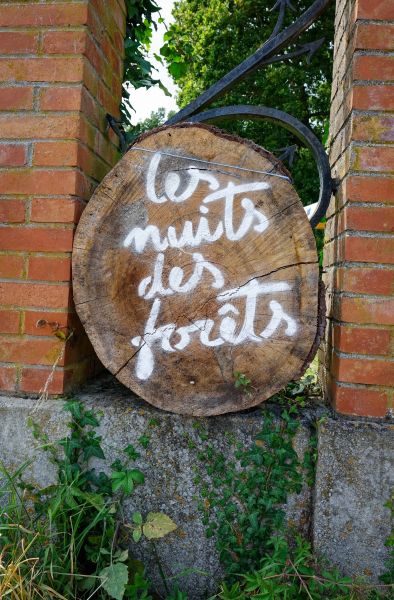 les
nuits
des
forêts